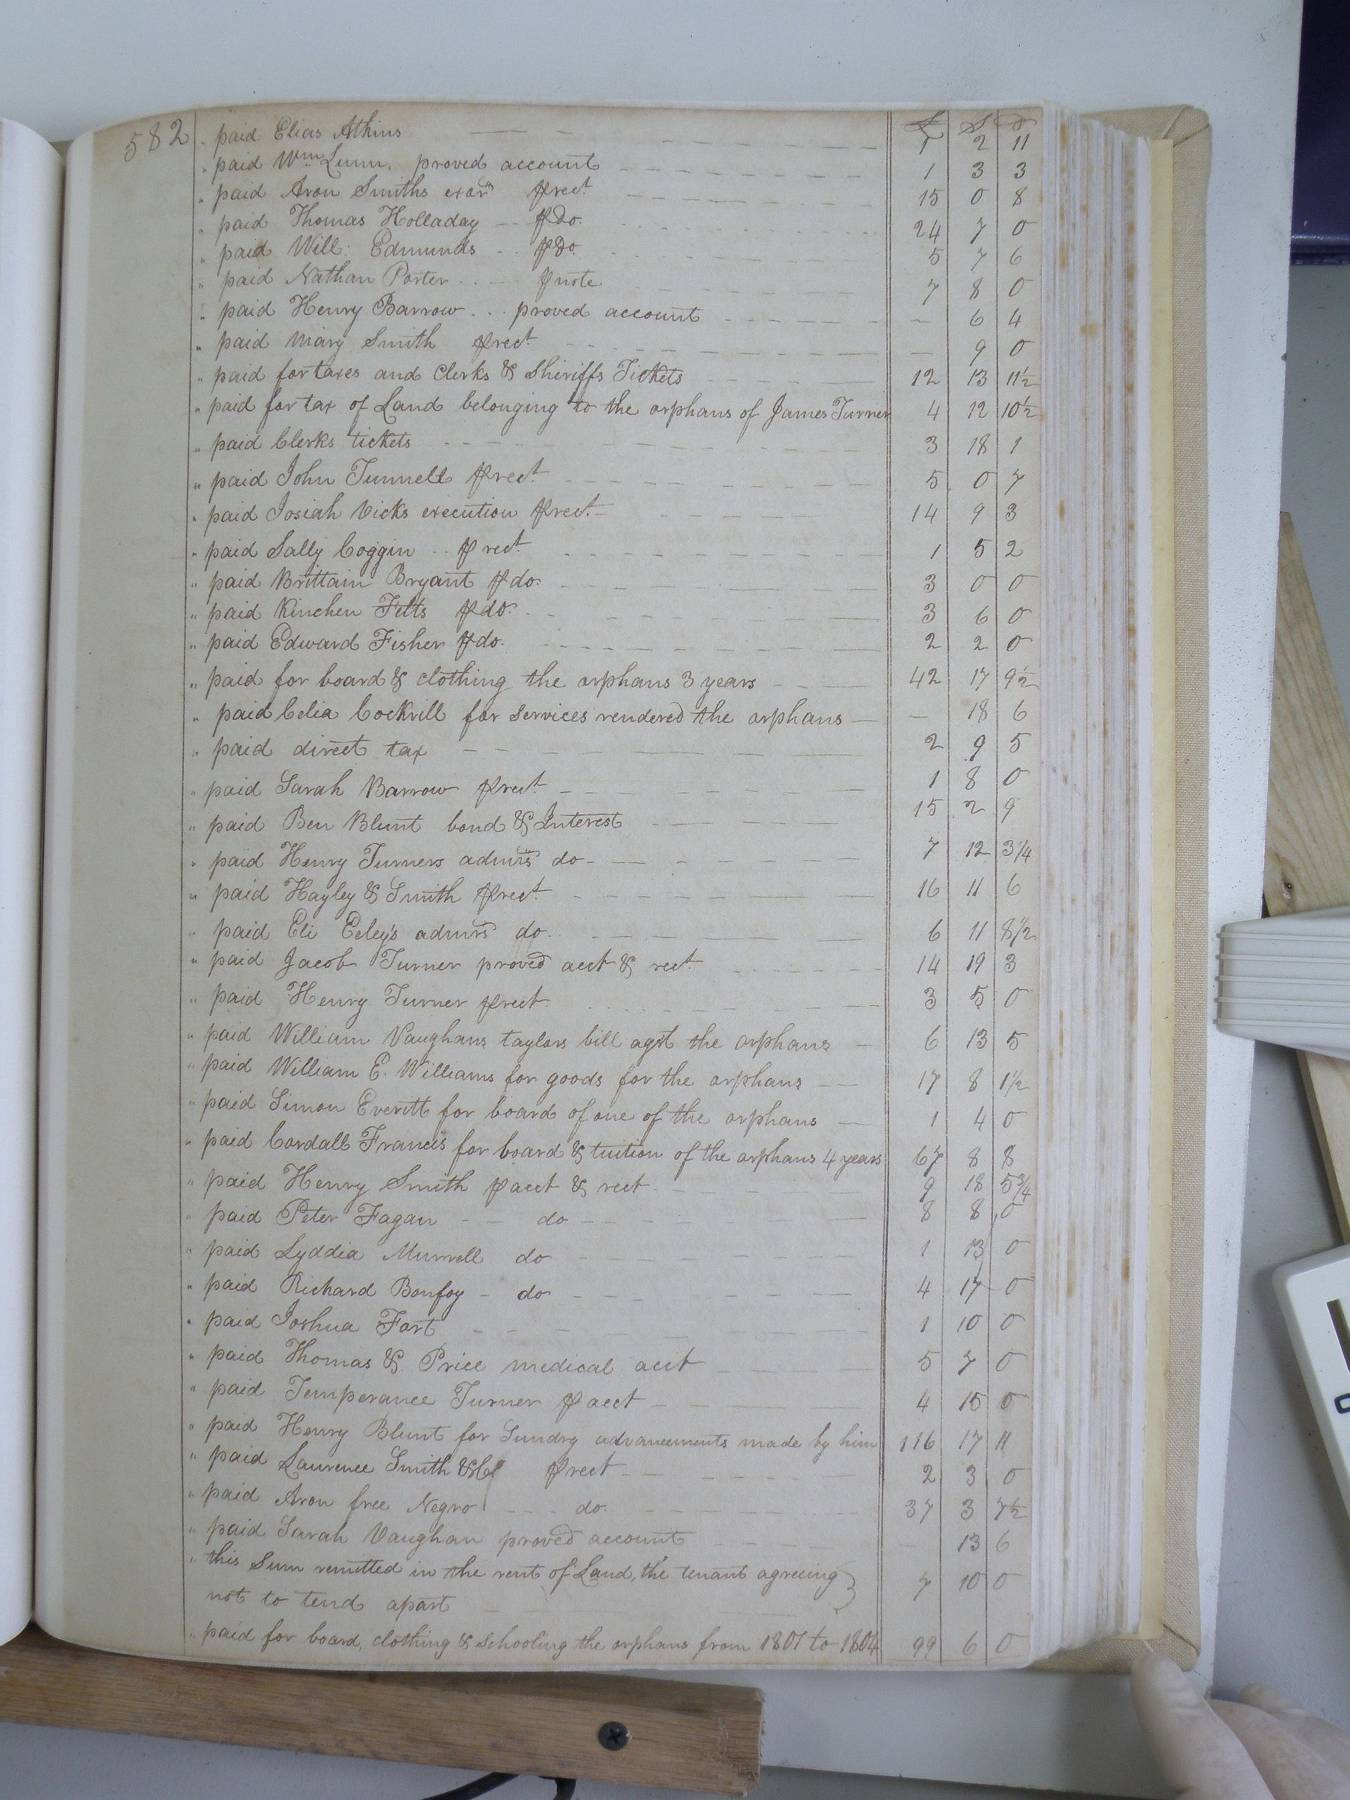 582
£ S D
" paid Elias Atkins 1 2 11
" paid Wm Lunn, proved account 1 3 3
" paid Aron Smiths exōr ⅌ rect 15 0 8
" paid Thomas Holladay ⅌ do 24 7 0
" paid Will: Edmunds ⅌ do 5 7 6
" paid Nathan Porter ⅌ note 7 8 0
" paid Henry Barrow proved account — 6 4
" paid Mary Smith ⅌ rect — 9 0
" paid for taxes and Clerks & Sheriffs Tickets 12 13 11½
" paid for tax of Land belonging to the orphans of James Turner 4 12 10½
" paid Clerks tickets 3 18 1
" paid John Tunnell ⅌ rect 5 0 7
" paid Josiah Vicks execution ⅌ rect 14 9 3
" paid Sally Coggin ⅌ rect 1 5 2
" paid Brittain Bryant ⅌ do 3 0 0
" paid Kinchen Fitts ⅌ do 3 6 0
" paid Edward Fisher ⅌ do 2 2 0
" paid for board & clothing the orphans 3 years 42 17 9½
" paid Celia Cockrill for services rendered the orphans — 18 6
" paid direct tax 2 9 5
" paid Sarah Barrow ⅌ rect 1 8 0
" paid Ben Blunt bond & Interest 15 2 9
" paid Henry Turners admrs do 7 12 3¼
" paid Hayley & Smith ⅌ rect 16 11 6
" paid Eli Eeley's admrs do 6 11 8½
" paid Jacob Turner proved acct & rect 14 19 3
" paid Henry Turner ⅌ rect 3 5 0
" paid William Vaughans taylors bill agst the orphans 6 13 5
" paid William E. Williams for goods for the orphans 17 8 1½
" paid Simon Everitt for board of one of the orphans 1 4 0
" paid Cordall Francis for board & tuition of the orphans 4 years 67 8 8
" paid Henry Smith ⅌ acct & rect 9 18 5¾
" paid Peter Fagan do 8 8 0
" paid Lyddia Murrell do 1 13 0
" paid Richard Bonfoy do 4 17 0
" paid Joshua Fort 1 10 0
" paid Thomas & Price medical acct 5 7 0
" paid Temperance Turner ⅌ acct 4 15 0
" paid Henry Blunt for Sundry advancements made by him 116 17 11
" paid Laurence Smith & Co ⅌ rect 2 3 0
" paid Aron free Negro do 37 3 7½
" paid Sarah Vaughan proved account 13 6
" this Sum remitted in the rent of Land, the tenant agreeing
not to tend apart 7 10 0
" paid for board, clothing & schooling the orphans from 1801 to 1804 99 6 0